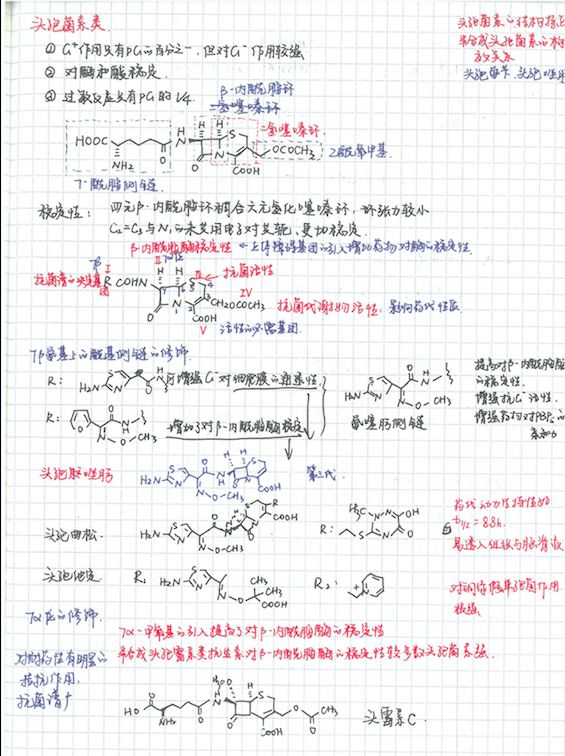 头孢菌素类
① G⁺作用只有PG的百分之一,但对G⁻作用较强
② 对酶和酸稳定.
③ 过敏反应只有PG的1/4.
β-内酰胺环
二氢噻嗪环
HOOC
NH₂
H
N
H H
S
O
N
COOH
OCOCH₃
二氢噻嗪环
乙酰氧甲基
7-酰胺侧链
头孢菌素的结构
半合成头孢菌素的构
效关系
稳定性: 四元β-内酰胺环稠合六元氢化噻嗪环,环张力较小
C₂=C₃与N₁的未共用电子对共轭,更加稳定.
β-内酰胺酶稳定性
抗菌谱的决定基团
I
R COHN
II
H H
III 抗菌活性
IV
CH₂OCOCH₃
COOH
V 活性的必需基团.
抗菌代谢物活性; 影响药代性质
7β氨基上的酰基侧链的修饰
R:
H₂N
S
N
O
H
N
可增强G⁻对细胞膜的通透性
R:
O
N
O-CH₃
增加了对β-内酰胺酶稳定
H₂N
N
OCH₃
氨噻肟侧链
提高对β-内酰胺酶
的稳定性.
增强抗G⁻活性.
增强药物对PBPs的
亲和力
头孢噻肟
H₂N
N-OCH₃
COOH
第三代.
头孢曲松.
H₂N
N
O-CH₃
R
COOH
R:
H₃C
N
OH
O
S
药代动力学特性好
t₁/₂ = 8.8h.
易透入组织与脑脊液
头孢他啶
R₁
H₂N
CH₃
CH₃
COOH
R₂:
N
对铜绿假单胞菌作用
极强
7α位的修饰.
7α-甲氧基的引入提高了对β-内酰胺酶的稳定性
半合成头霉素类抗生素对β-内酰胺酶的稳定性较多数头孢菌素强.
对耐药性有明显的
拮抗作用.
抗菌谱广
HO
O
NH₂
H
N
O
S
N
COOH
O
CH₃
头霉素C.